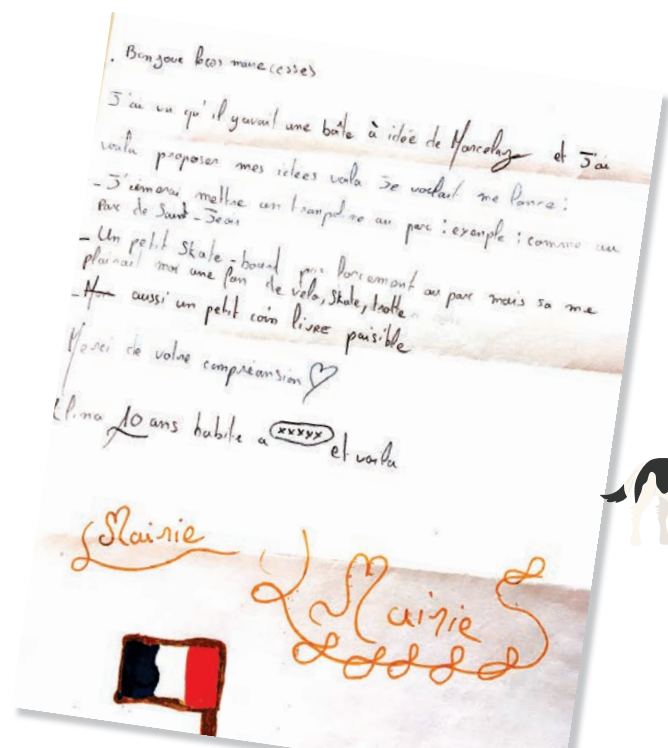 . Bonjour
J'ai vu qu'il y avait une bôîte à idée de Marcelaz et J'ai
voulu proposer mes idées voila Je me lance :
- J'émerai mettre un tranpoline au parc : exemple : comme au
Parc de Saint-Jean
- Un petit Skate-board pas forcement au parc mais sa me
plairait moi une fan de vélo, skate, trotte
- aussi un petit coin livre paisible
Merci de votre compréansion ♡
10 ans habite a xxxxx et voila
Mairie
Mairie